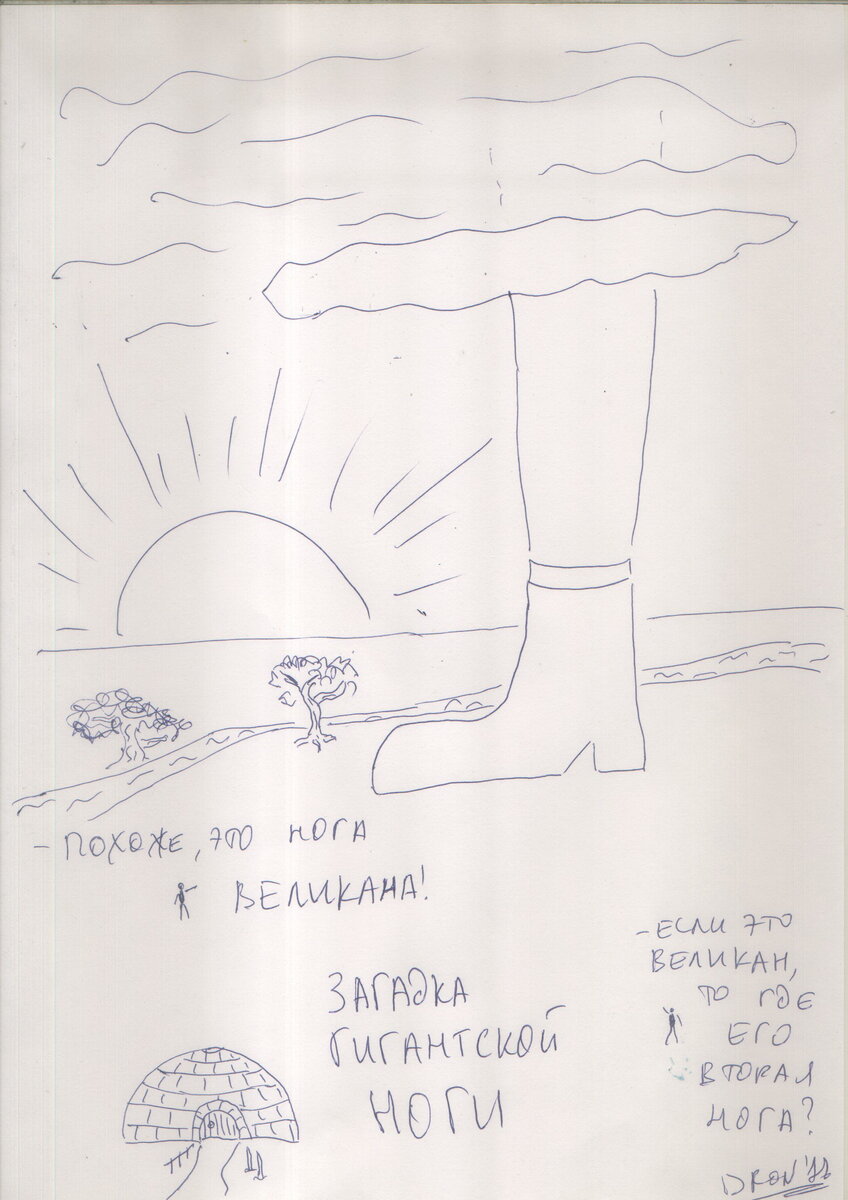 - ПОХОЖЕ, ЭТО НОГА
ВЕЛИКАНА!
- ЕСЛИ ЭТО
ВЕЛИКАН,
ТО ГДЕ
ЕГО
ВТОРАЯ
НОГА?
ЗАГАДКА
ГИГАНТСКОЙ
НОГИ
DRON'11